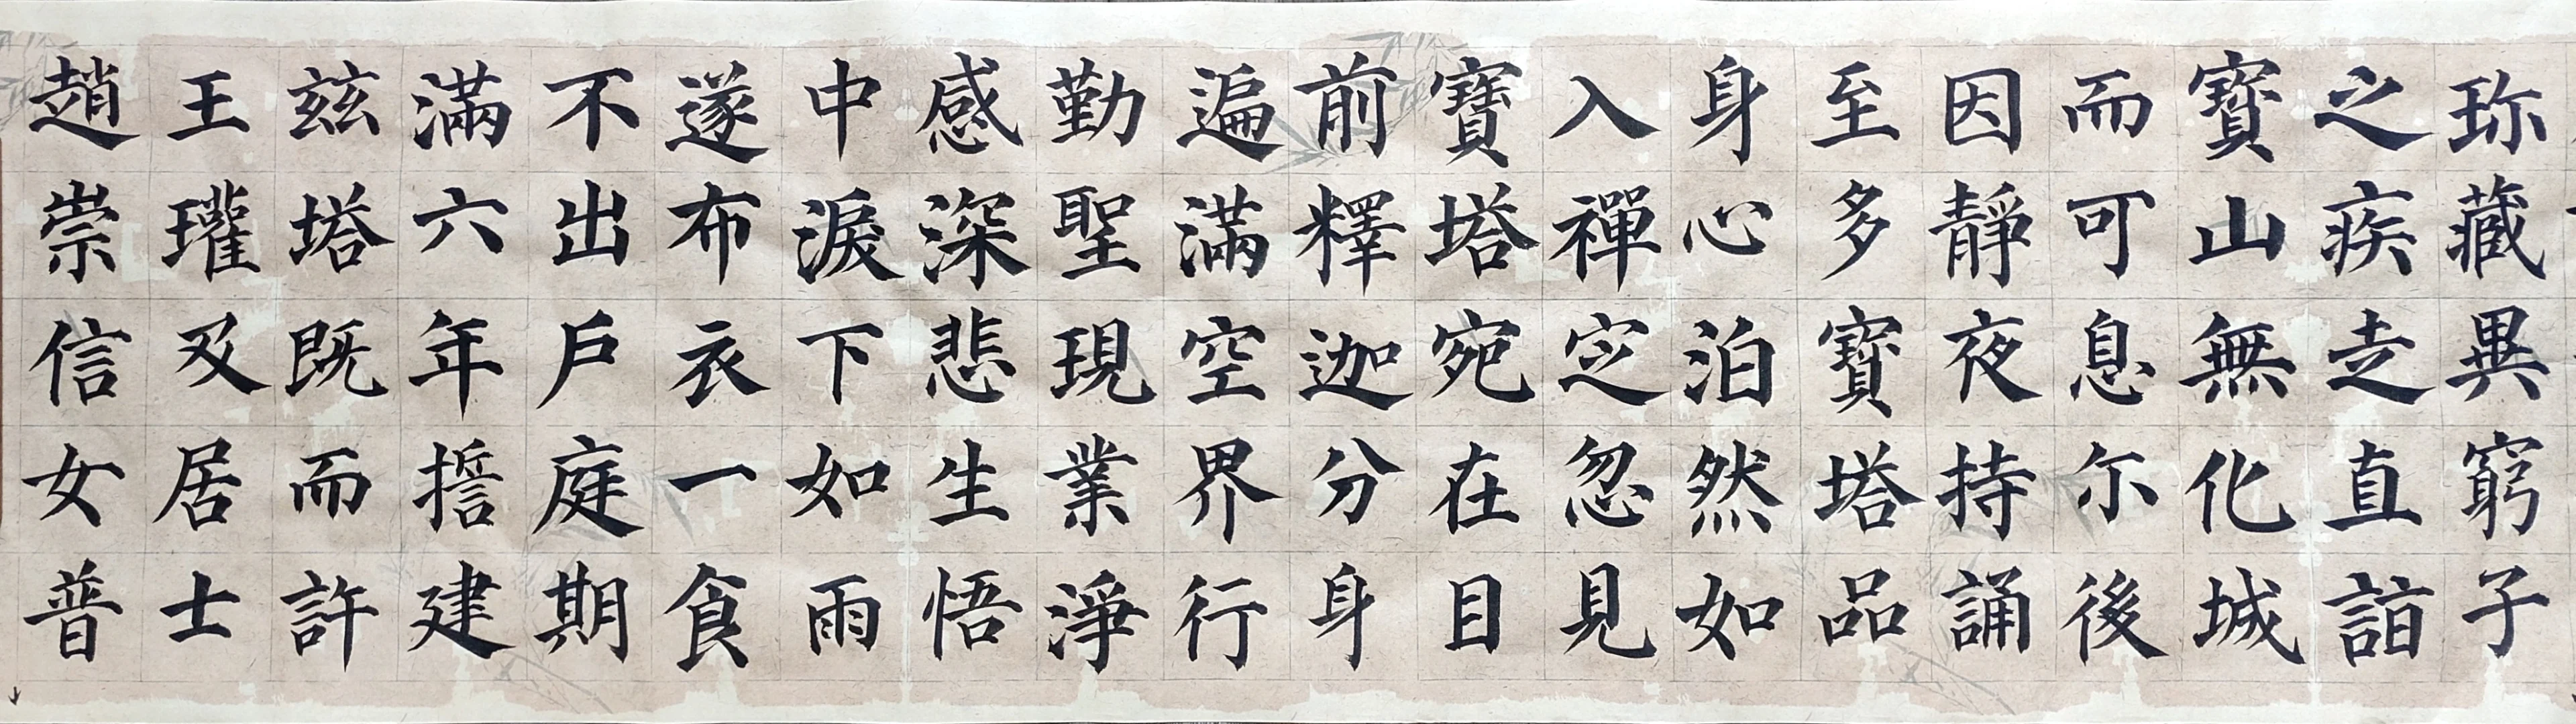 珎藏異窮子
之疾走直詣
寶山無化城
而可息尓後
因靜夜持誦
至多寶塔品
身心泊然如
入禪定忽見
寶塔宛在目
前釋迦分身
遍滿空界行
勤聖現業淨
感深悲生悟
中淚下如雨
遂布衣一食
不出戶庭期
滿六年擔建
茲塔既而許
王瓘及居士
趙崇信女普